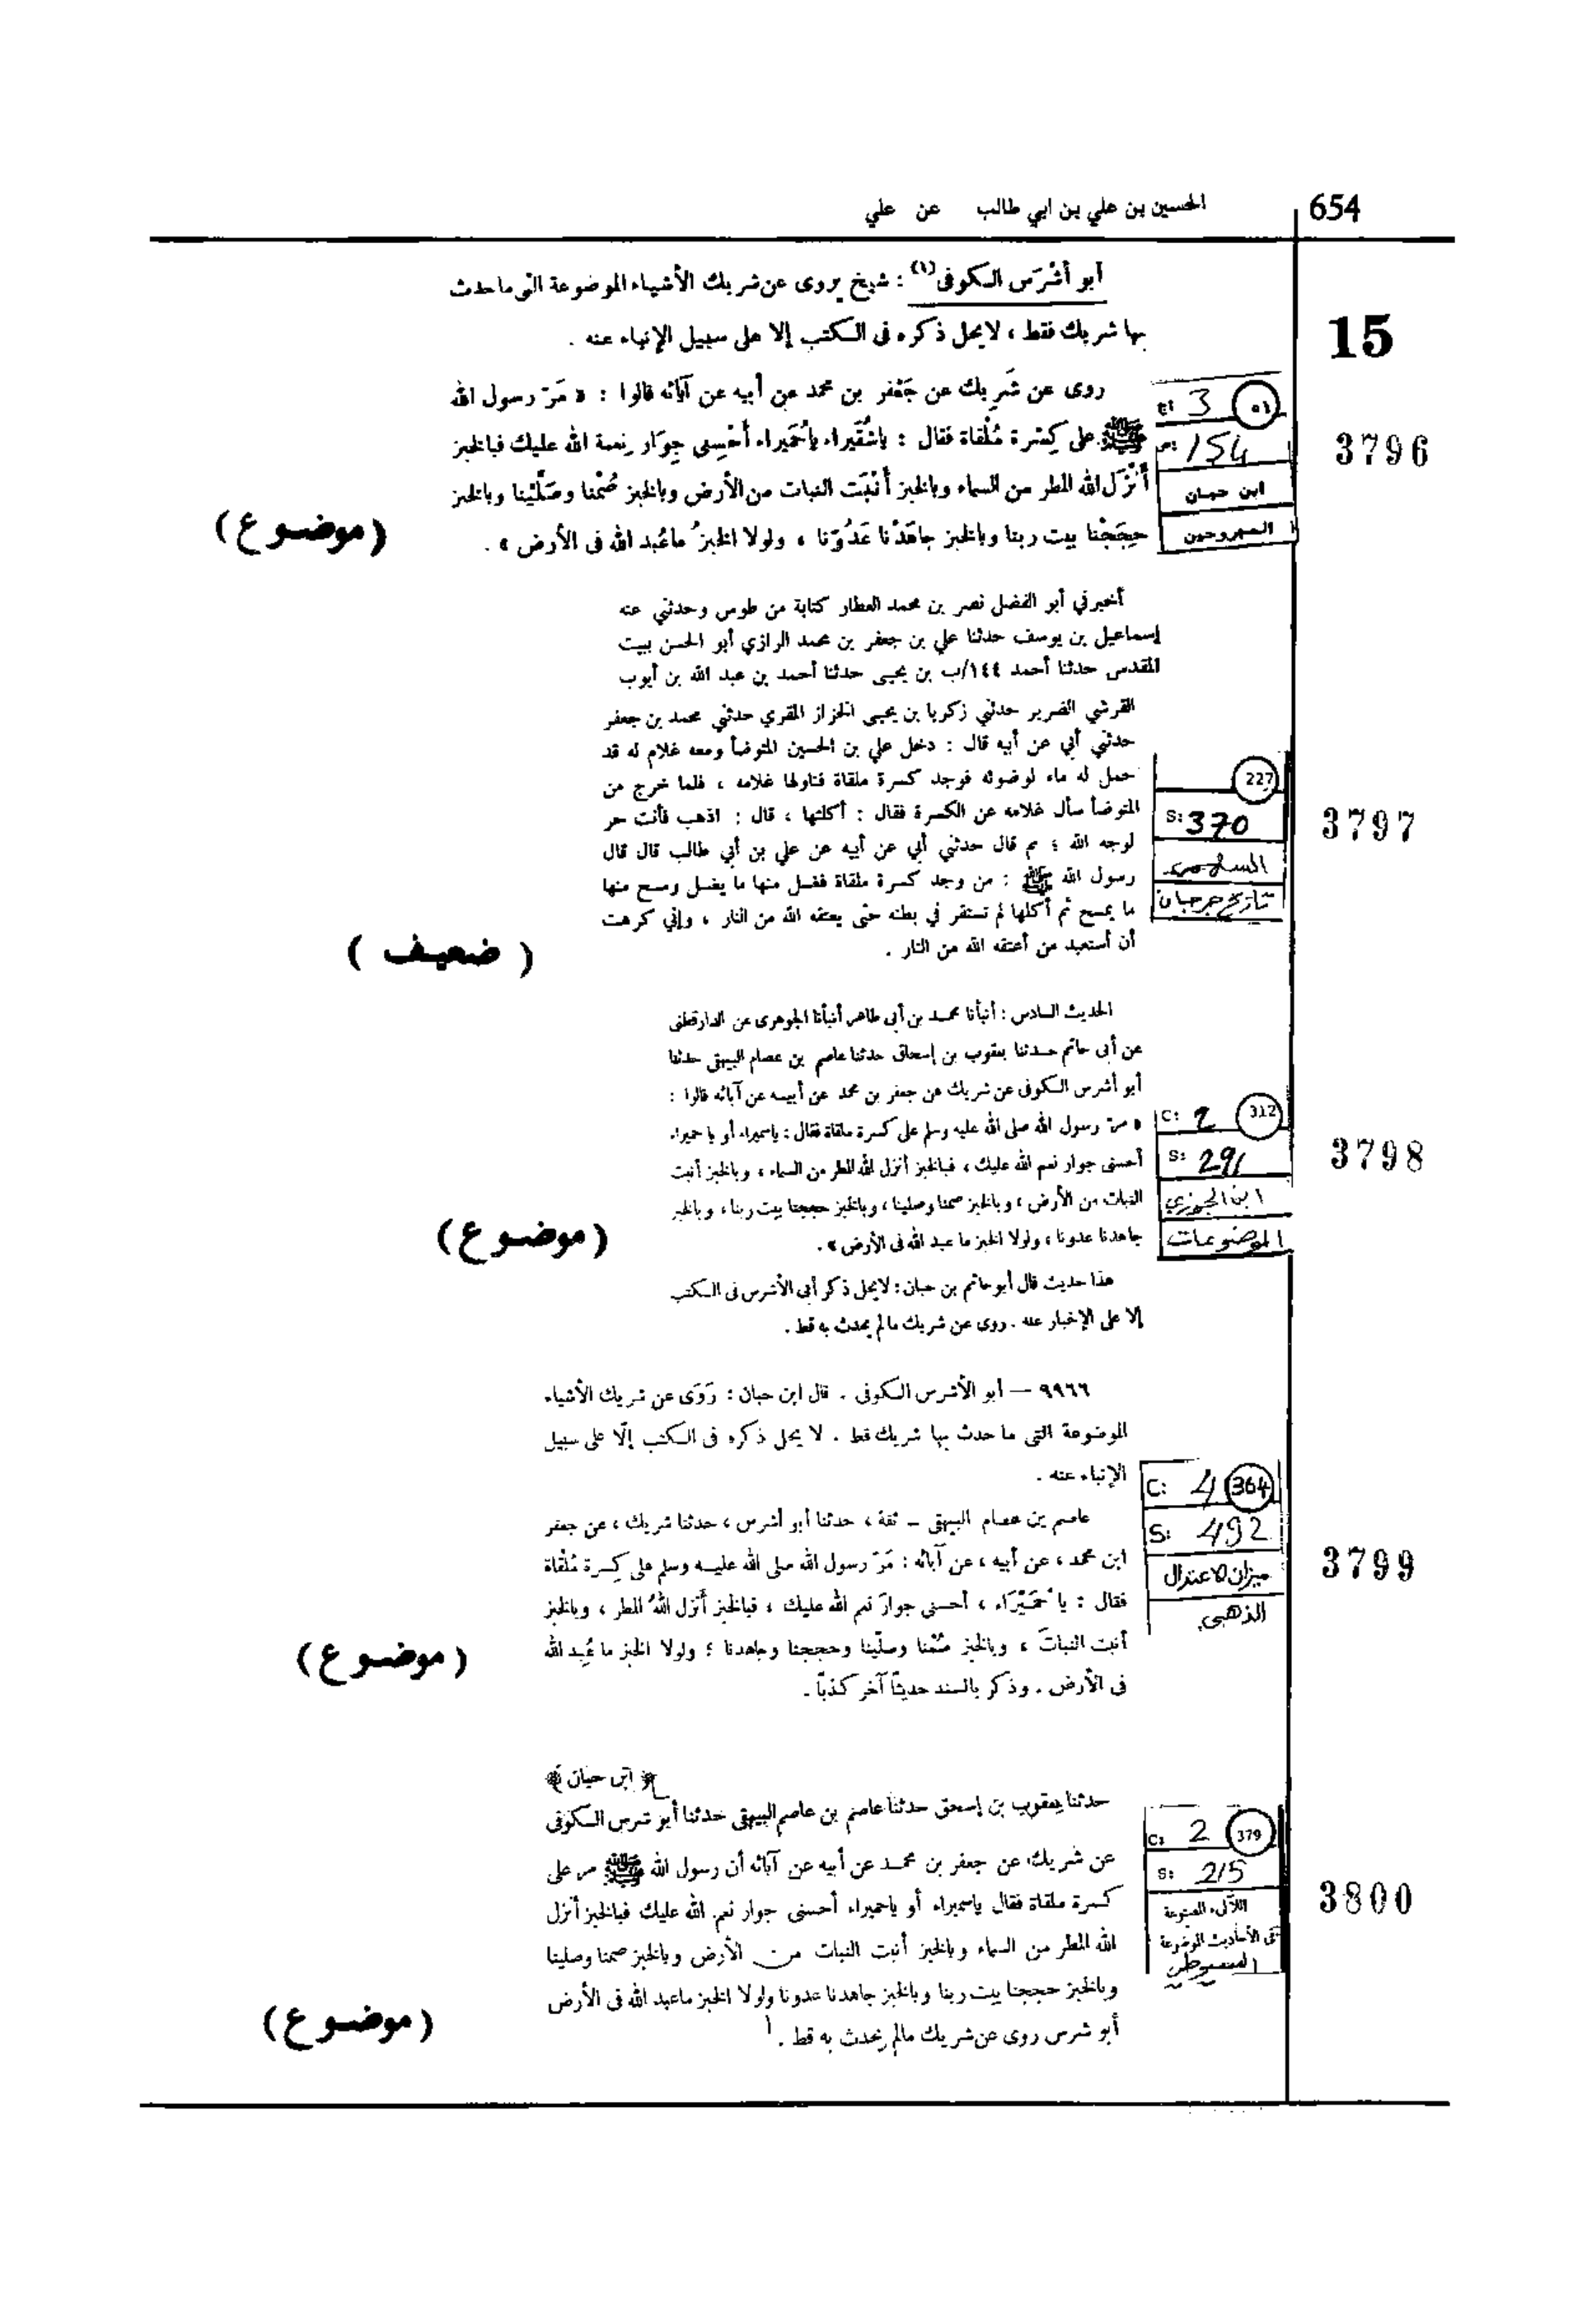 الحسين بن علي بن ابي طالب عن علي
654
أبو أشْرَس الكوفى (١) : شيخ يروى عن شريك الأشياء الموضوعة التى ما حدث
بها شريك فقط ، لا يحل ذكره فى الكتب إلا على سبيل الإنباء عنه .
15
روى عن شَرِيك عن جَعْفر بن محمد عن أبيه عن آبائه قالوا : « مَرّ رسول الله
ﷺ على كِسْرة مُلْقاة فقال : ياشُقَيراء ياحُمَيراء أحْسِنِى جِوَار نِعمة الله عليك فبالخبز
أنْزَل الله المطر من السماء وبالخبز أنْبَتَ النبات من الأرض وبالخبز صُمْنا وصَلَّيْنا وبالخبز
حجَجْنا بيت ربنا وبالخبز جاهَدْنا عَدُوّنا ، ولولا الخبزُ ماعُبد الله فى الأرض » .
(موضوع)
3
٥١
154
ابن حبان
المجروحين
3796
أخبرني أبو الفضل نصر بن محمد العطار كتابة من طوس وحدثني عنه
إسماعيل بن يوسف حدثنا علي بن جعفر بن محمد الرازي أبو الحسن ببيت
المقدس حدثنا أحمد ١٤٤/ب بن يحيى حدثنا أحمد بن عبد الله بن أيوب
القرشي الضرير حدثني زكريا بن يحيى الخزاز المقري حدثني محمد بن جعفر
حدثني أبي عن أبيه قال : دخل علي بن الحسين المتوضأ ومعه غلام له قد
حمل له ماء لوضوئه فوجد كسرة ملقاة فناولها غلامه ، فلما خرج من
المتوضأ سأل غلامه عن الكسرة فقال : أكلتها ، قال : اذهب فأنت حر
لوجه الله ؛ ثم قال حدثني أبي عن أبيه عن علي بن أبي طالب قال قال
رسول الله ﷺ : من وجد كسرة ملقاة فغسل منها ما يغسل ومسح منها
ما يمسح ثم أكلها لم تستقر في بطنه حتى يعتقه الله من النار ، وإني كرهت
أن أستعبد من أعتقه الله من النار .
( ضعيف )
227
S: 370
السهمي
تاريخ جرجان
3797
الحديث السادس : أنبأنا محمد بن أبى طاهر أنبأنا الجوهرى عن الدارقطنى
عن أبى حاتم حدثنا يعقوب بن إسحاق حدثنا عاصم بن عصام البيهقى حدثنا
أبو أشرس الكوفى عن شريك عن جعفر بن محمد عن أبيه عن آبائه قالوا :
« مر رسول الله صلى الله عليه وسلم على كسرة ملقاة فقال : ياسميراء أو يا حميراء
أحسنى جوار نعم الله عليك ، فبالخبز أنزل الله المطر من السماء ، وبالخبز أنبت
النبات من الأرض ، وبالخبز صمنا وصلينا ، وبالخبز حججنا بيت ربنا ، وبالخبز
جاهدنا عدونا ، ولولا الخبز ما عبد الله فى الأرض » .
(موضوع)
هذا حديث قال أبو حاتم بن حبان : لا يحل ذكر أبى الأشرس فى الكتب
إلا على الإخبار عنه . روى عن شريك مالم يحدث به قط .
C: 2
312
S: 291
ابن الجوزي
الموضوعات
3798
٩٩٦٦ — أبو الأشرس الكوفى . قال ابن حبان : رَوَى عن شريك الأشياء
الموضوعة التى ما حدث بها شريك قط . لا يحل ذكره فى الكتب إلّا على سبيل
الإنباء عنه .
عاصم بن عصام البيهقى – ثقة ، حدثنا أبو أشرس ، حدثنا شريك ، عن جعفر
ابن محمد ، عن أبيه ، عن آبائه : مَرّ رسول الله صلى الله عليه وسلم على كِسرة مُلْقاة
فقال : يا حُمَيْرَاء ، أحسنى جوارَ نعم الله عليك ، فبالخبز أنزل اللهُ المطر ، وبالخبز
أنبت النباتَ ، وبالخبز صُمْنا وصلّينا وحججنا وجاهدنا ؛ ولولا الخبز ما عُبِد الله
فى الأرض . وذكر بالسند حديثاً آخر كذباً .
(موضوع)
C: 4
364
S: 492
ميزان الاعتدال
الذهبي
3799
﴿ ابن حبان ﴾
حدثنا يعقوب بن إسحق حدثنا عاصم بن عاصم البيهقى حدثنا أبو شرس الكوفى
عن شريك عن جعفر بن محمد عن أبيه عن آبائه أن رسول الله ﷺ مر على
كسرة ملقاة فقال ياسميراء أو ياحميراء أحسنى جوار نعم الله عليك فبالخبز أنزل
الله المطر من السماء وبالخبز أنبت النبات من الأرض وبالخبز صمنا وصلينا
وبالخبز حججنا بيت ربنا وبالخبز جاهدنا عدونا ولولا الخبز ماعبد الله فى الأرض
أبو شرس روى عن شريك مالم يحدث به قط .
(موضوع)
C: 2
379
S: 215
اللآلىء المصنوعة
فى الأحاديث الموضوعة
السيوطي
3800